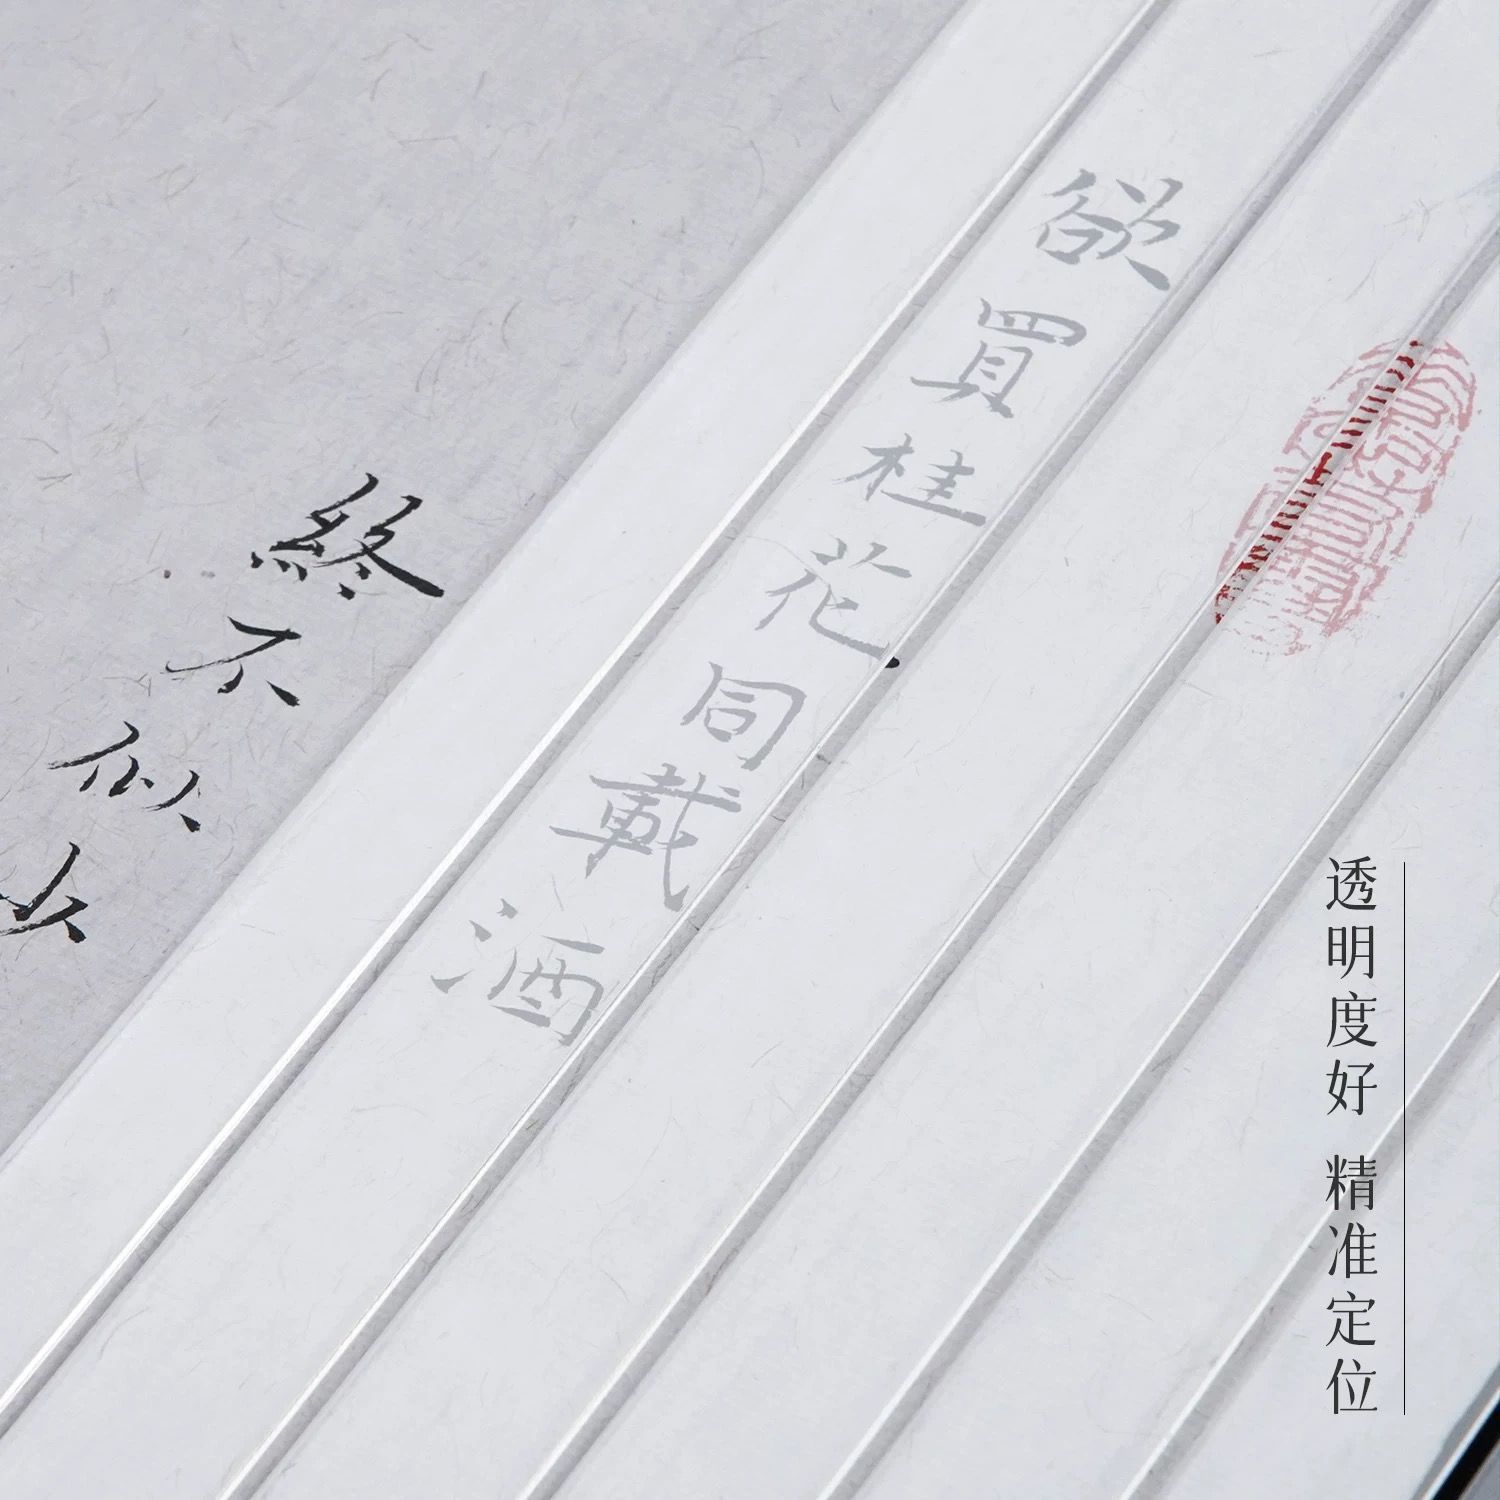 欲買桂花同載酒
終不似少
透明度好 精准定位